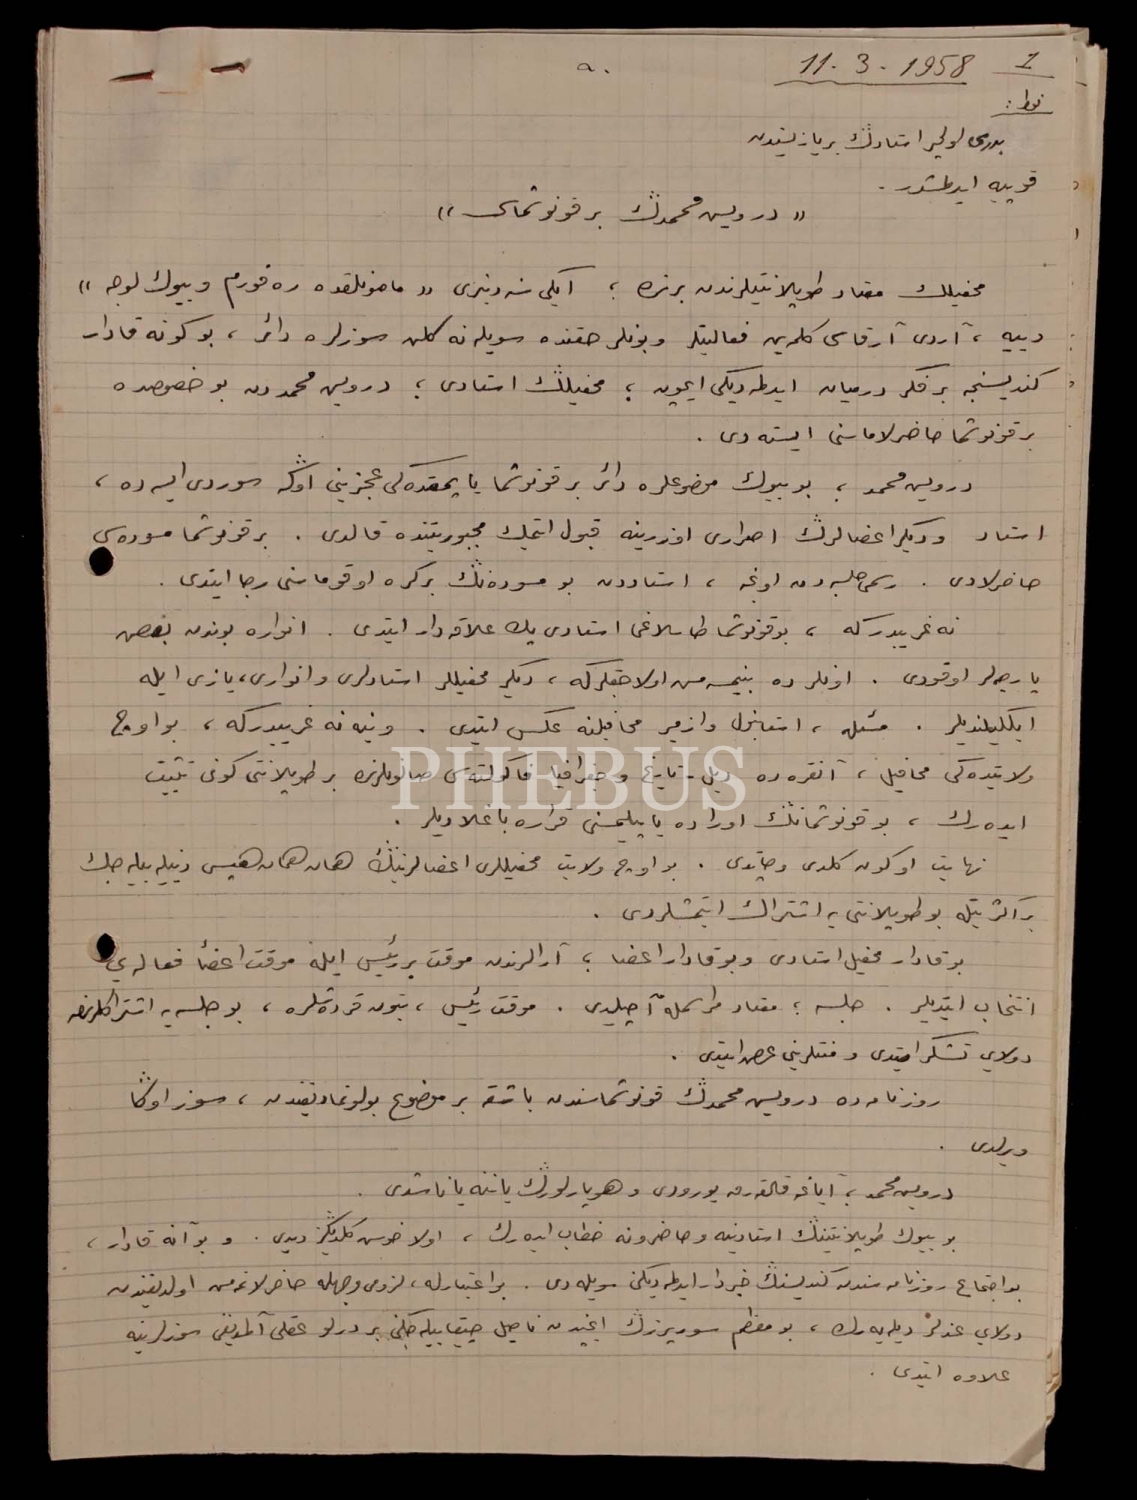 1
11. 3. 1958
نوط :
بدری لولجر استادڭ بر یازیسندن
قوپیه ایدلمشدر .
« درویس محمدڭ بر قونوشماسی »
محفیلك معتاد طوپلانتیلرندن برنده ؛ ایکی سنه دنبری « ماصونلقده ره فورم و بیوك لوجه »
دییه ، آردی آرقاسی كلمەین فعالیتلر و بونلر حقنده سویله نه كلن سوزلره دائر ، بو كونه قادار
كندیسنجه بر فكر درمیان ایدلمه دیكی ایچون ؛ محفیلڭ استادی ؛ درویس محمددن بو خصوصده
بر قونوشما حاضرلاماسنی ایسته دی .
درویس محمد ؛ بو بیوك موضوعلره دائر بر قونوشما یاپمقده كی عجزینی اوڭه سوردی ایسه ده ،
استاد و دیكر اعضالرڭ اصراری اوزرینه قبول ایتمك مجبوریتنده قالدی . بر قونوشما مسوده سی
حاضرلادی . رسمی جلسه دن اونجه ، استاددن بو مسوده نڭ بر كره اوقوماسنی رجا ایتدی .
نه غریبدركه ، بو قونوشما طاسلاغی استادی پك علاقه دار ایتدی . انواره بوندن بعض
پارچه لر اوقودی . اونلر ده بنیمسه مش اولاجقلركه ، دیكر محفیللر استادلری و انواری ، یازی ایله
ایلكیلندیلر . مسئله ، استانبول و ازمیر محافلنه عكس ایتدی . و ینه نه غریبدركه ، بو اوچ
ولایتده كی محافیل ، آنقره ده دیل - تاریخ و جغرافیا فاكولته سی صالونلرنده بر طوپلانتی كونی تثبیت
ایده رك ، بو قونوشمانڭ اوراده یاپیلمسنی قراره باغلادیلر .
نهایت او كون كلدی و چاتدی . بو اوچ ولایت محفیللری اعضالرینڭ همان همان هپسی دنیله بیله جك
بر اكثریتله بو طوپلانتی یه اشتراك ایتمشلردی .
بو قادار محفیل استادی و بو قادار اعضا ؛ آرالرندن موقت بر رئیس ایله موقت اعضأ فعاله یی
انتخاب ایتدیلر . جلسه ؛ معتاد مراسمله آچیلدی . موقت رئیس ، بتون قرده شلره ، بو جلسه یه اشتراكلرندن
دولای تشكر ایتدی و منتلرینی عرض ایتدی .
روزنامه ده درویس محمدڭ قونوشماسندن باشقه بر موضوع بولونمادیغندن ، سوز اوڭا
ویرلدی .
درویس محمد ؛ آیاغه قالقه رق یورودی و هوپارلورڭ یاننه یاناشدی .
بو بیوك طوپلانتینڭ استادینه و حاضرونه خطاب ایده رك ، اولا خوس كلدیڭز دیدی . و بو آنه قادار ،
بو اجتماع روزنامه سندن كندیسنڭ خبردار ایدلمه دیكنی سویله دی . بو اعتبارله ، لزومی وجهله حاضرلانه مامش اولدیغندن
دولای عذر دیله یه رك ، بو معظم سورپریزڭ ایچندن ناصیل چیقابیله جكنی بر درلو عقلی آلمدیغنی سوزلرینه
علاوه ایتدی .
PHEBUS